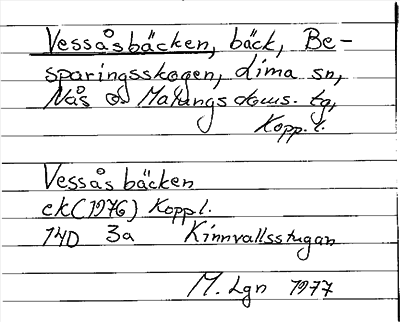 Vessåsbäcken, bäck, Be-
sparingsskogen, Lima sn,
Nås o Malungs doms. tg,
Kopp. l.
Vessåsbäcken
ek (1976) Kopp l.
14D 3a Kinnvallsstugan
M. Lgn 1977